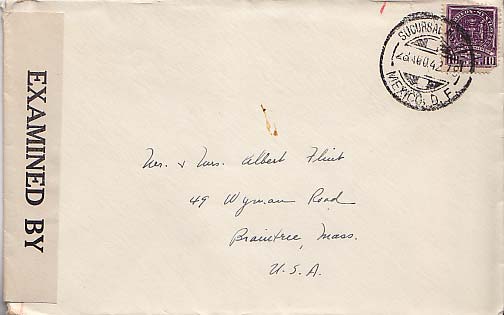 EXAMINED BY
SUCURSAL
28 AGO. 42
MEXICO, D. F.
10 10
Mr. & Mrs. Albert Flint
49 Wyman Road
Braintree, Mass.
U. S. A.